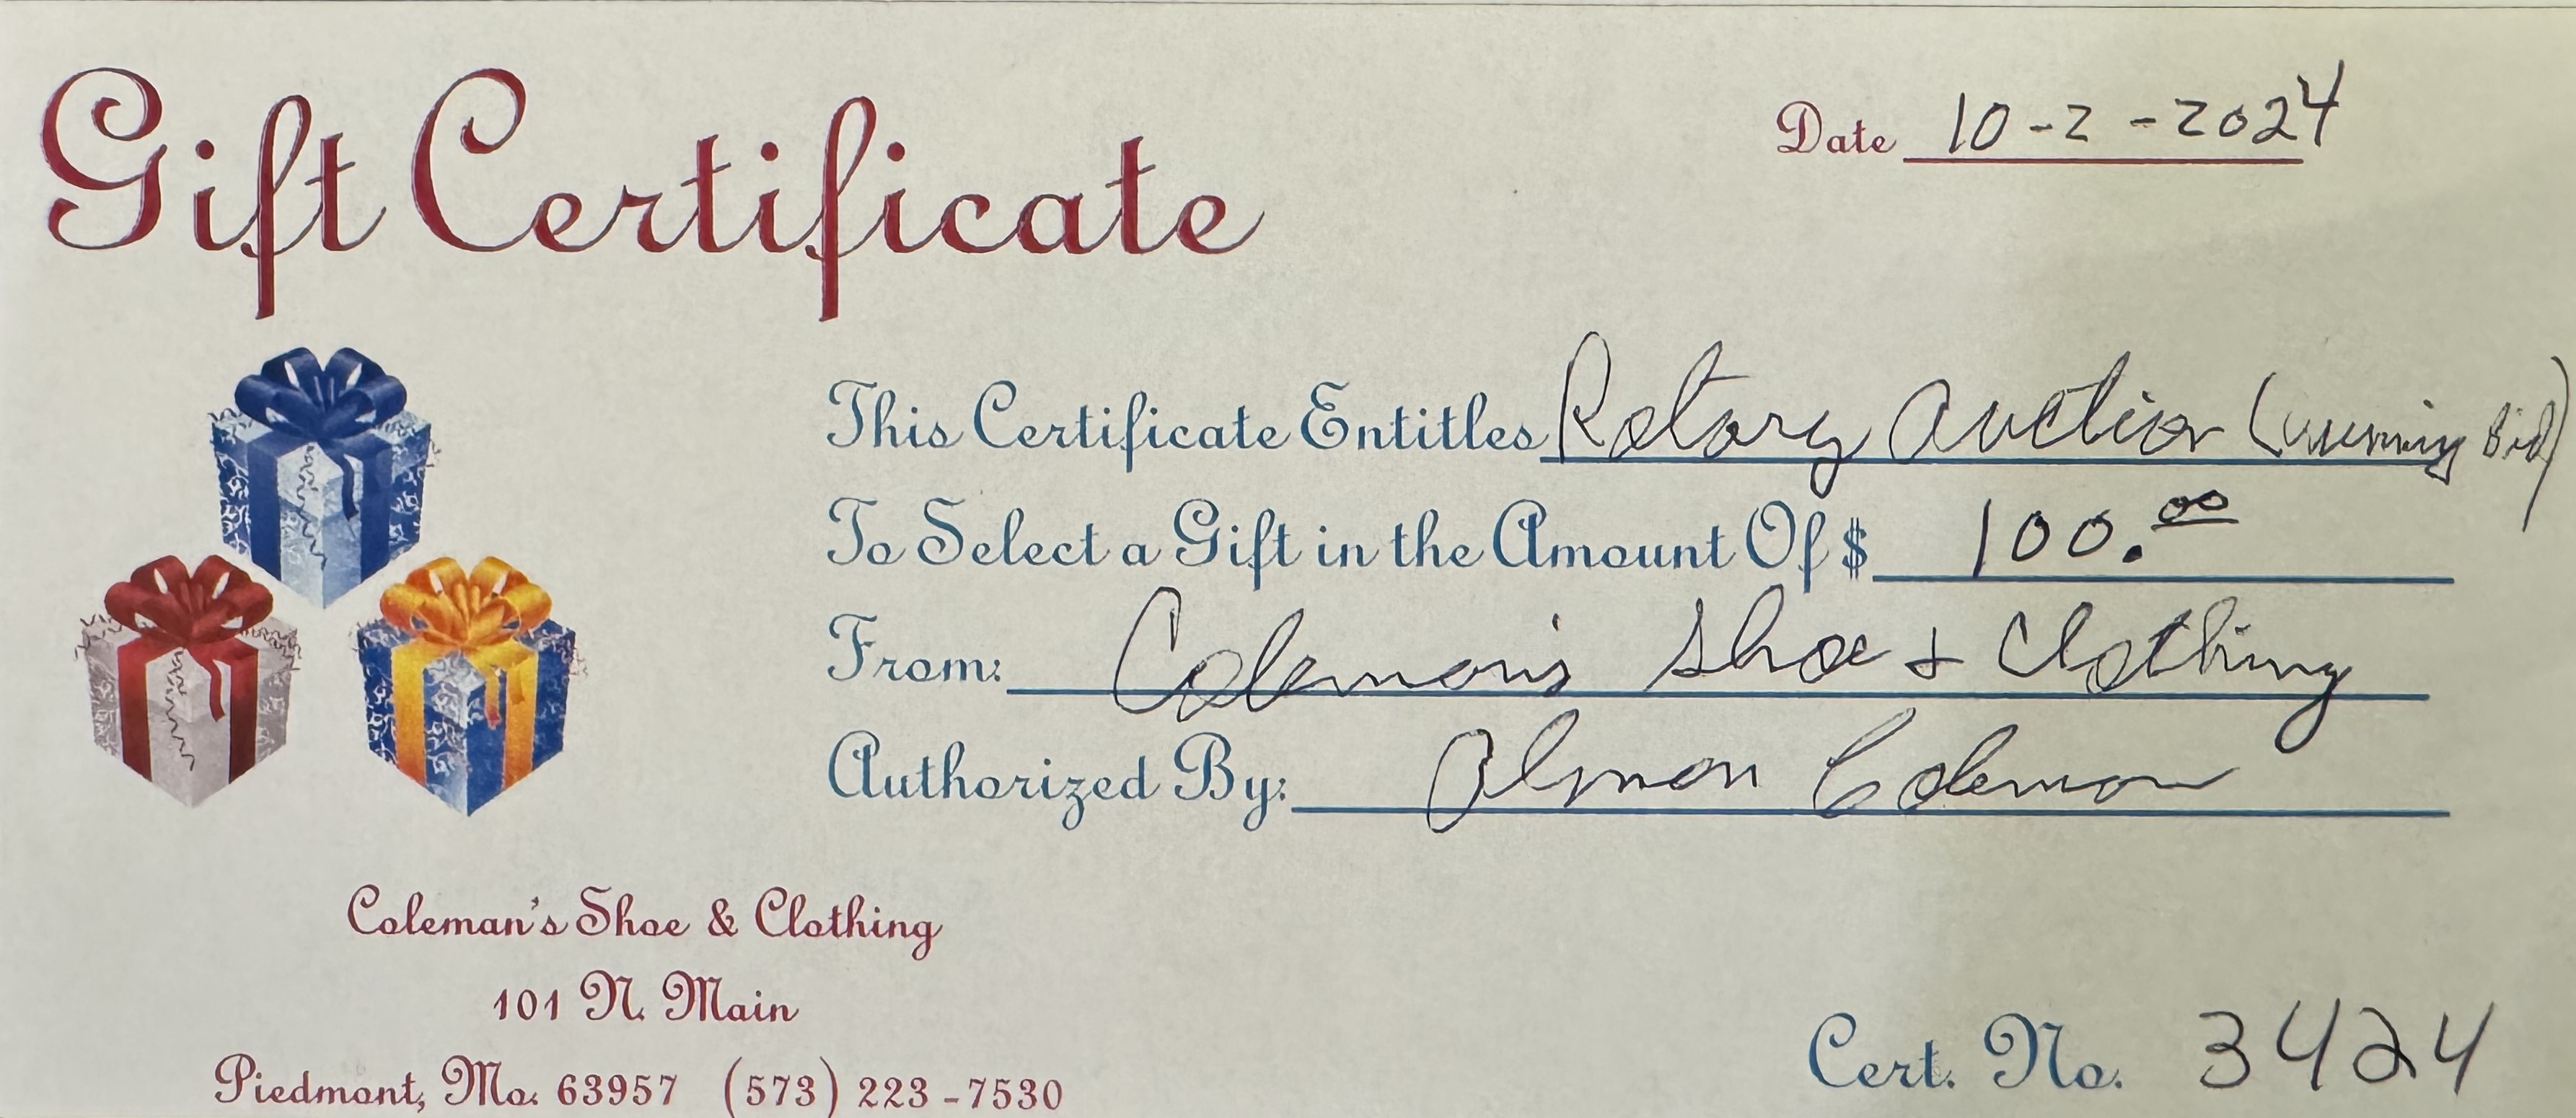 Gift Certificate
Date 10-2-2024
This Certificate Entitles Rotary Auction (winning Bid)
To Select a Gift in the Amount Of $ 100.00
From: Coleman's Shoe + Clothing
Authorized By: Almon Coleman
Coleman's Shoe & Clothing
101 N. Main
Piedmont, Mo. 63957 (573) 223-7530
Cert. No. 3424